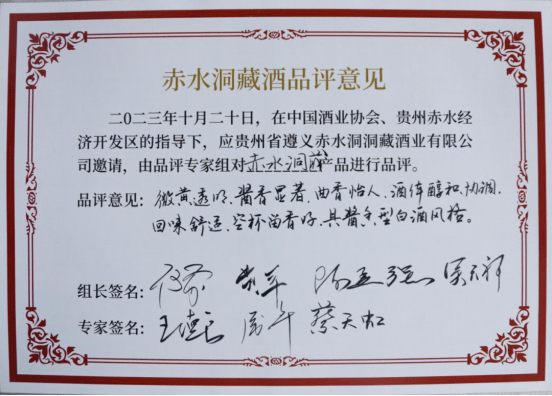 赤水洞藏酒品评意见
二〇二三年十月二十日，在中国酒业协会、贵州赤水经
济开发区的指导下，应贵州省遵义赤水洞洞藏酒业有限公
司邀请，由品评专家组对赤水洞藏产品进行品评。
品评意见：微黄透明、酱香显著、曲香怡人、酒体醇和协调、
回味舒适、空杯留香好，具酱香型白酒风格。
组长签名：
专家签名：蔡天虹